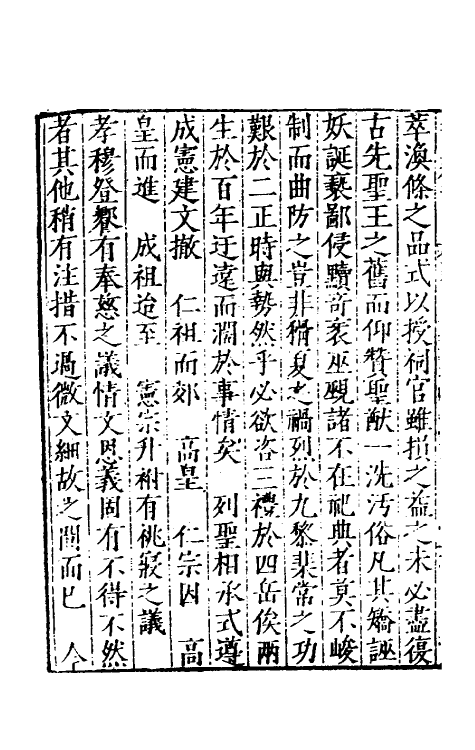 萃渙條之品式以授祠官雖損之益之未必盡復
古先聖王之舊而仰贊聖猷一洗汚俗凡其矯誣
妖誕褻鄙侵黷竒衺巫覡諸不在祀典者莫不峻
制而曲防之豈非猾夏之禍烈於九黎棐常之功
艱於二正時與勢然乎必欲咨三禮於四岳俟兩
生於百年迂遠而濶於事情矣　列聖相承式遵
成憲建文撤　仁祖而郊　高皇　仁宗因　高
皇而進　成祖迨至　憲宗升祔有祧寢之議
孝穆登饗有奉慈之議情文恩義固有不得不然
者其他稍有注措不過微文細故之間而已　今